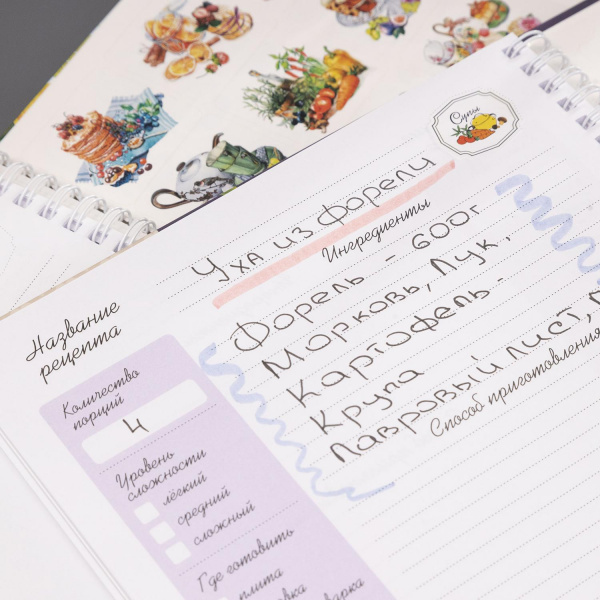 Супы
Уха из форели
Название
рецепта
Ингредиенты
Форель - 600г
Морковь, Лук,
Картофель -
Крупа
Лавровый лист,
Способ приготовления
Количество
порций
4
Уровень
сложности
лёгкий
средний
сложный
Где готовить
плита